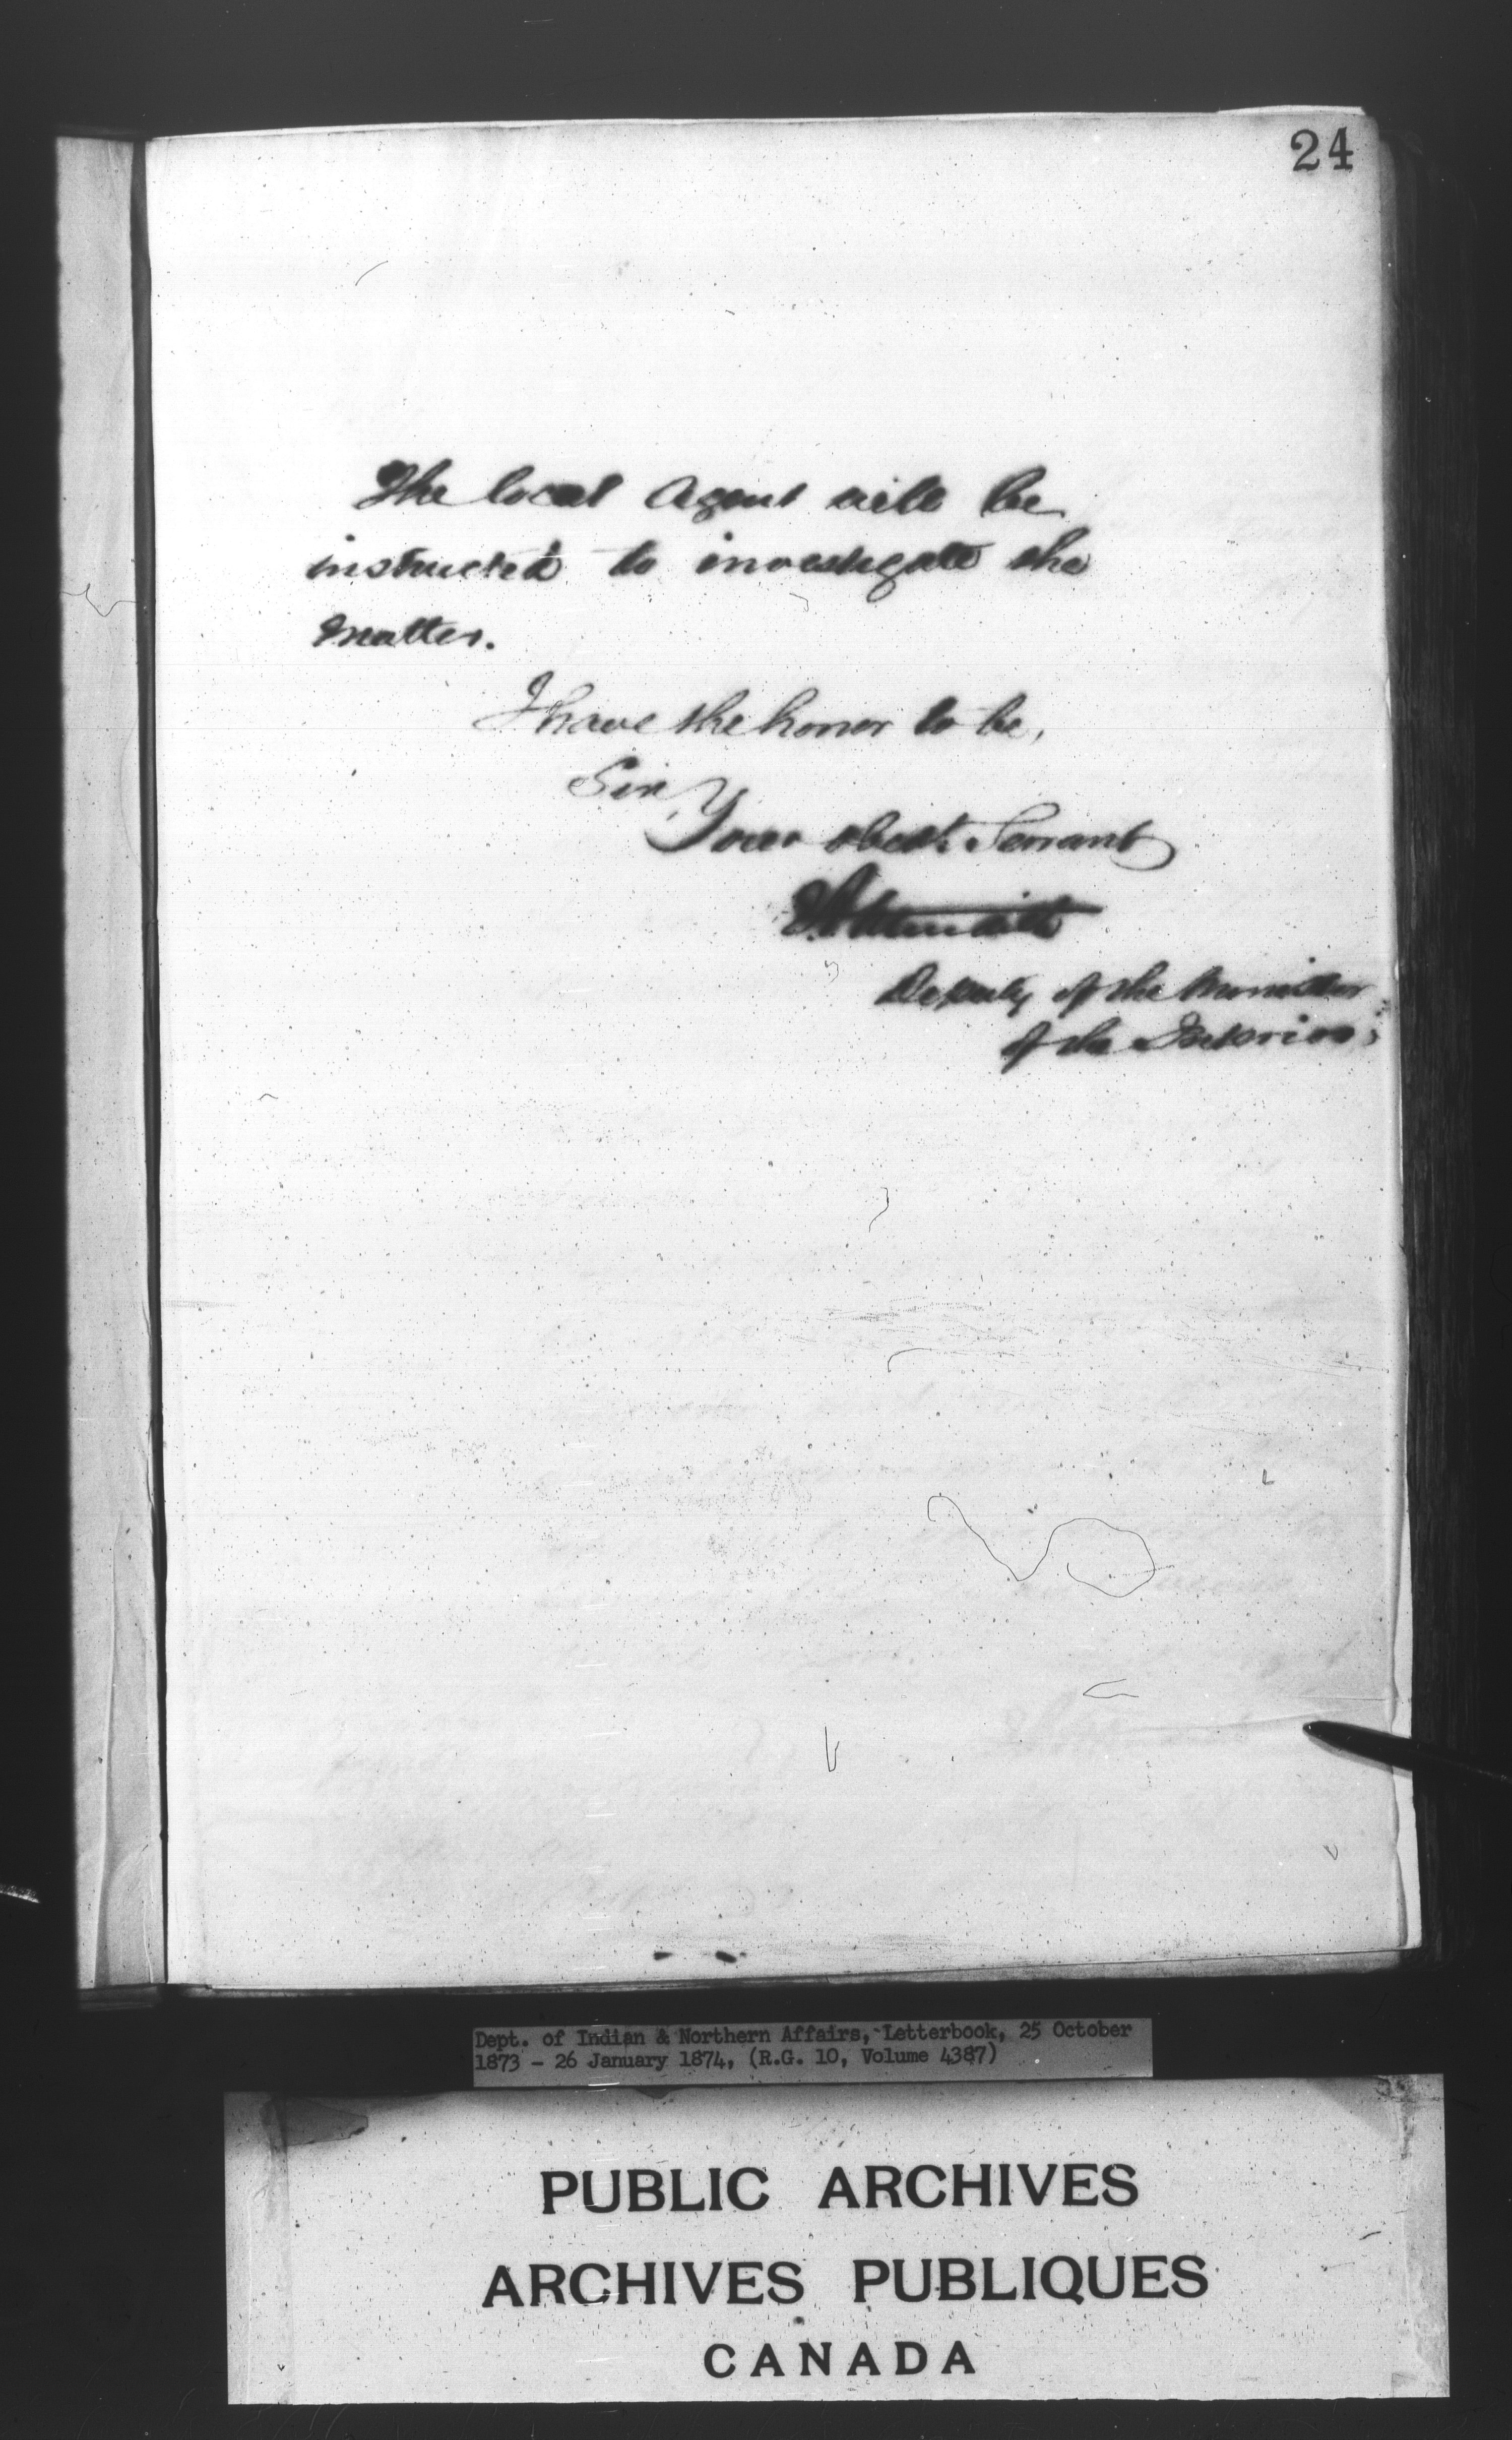 24
The local Agent will be
instructed to investigate the
matter.
I have the honor to be,
Sir,
Your obedt. Servant
Deputy of the Minister
of the Interior
Dept. of Indian & Northern Affairs, Letterbook, 25 October
1873 - 26 January 1874, (R.G. 10, Volume 4387)
PUBLIC ARCHIVES
ARCHIVES PUBLIQUES
CANADA